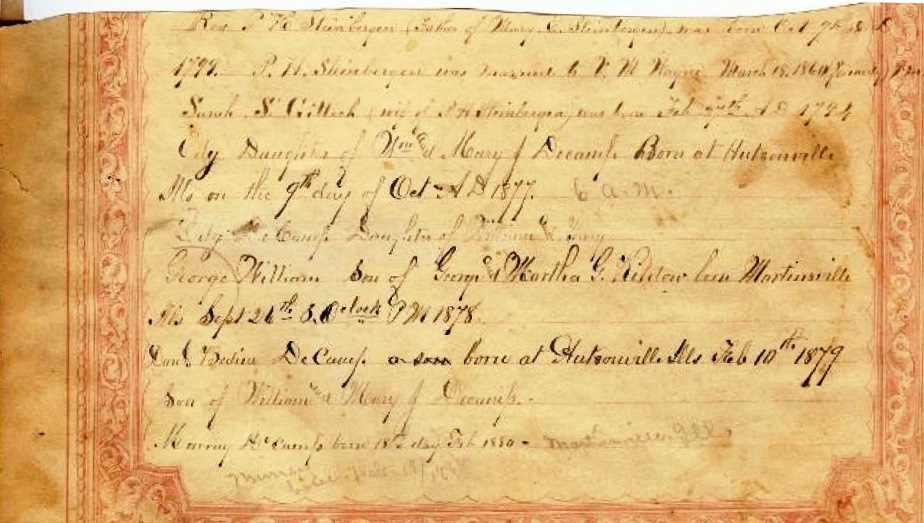 Rev P. H. Steinbergen (Father of Mary E. Steinbergen) was born Oct 7th
1799. P. H. Steinbergen was married to V. M Wayne March 18, 1860
Sarah S. (wife of P. H Steinbergen) was born Feb A D 1794
Daughter of Wm and Mary J Decamp. Born at Hutsonville
Ills on the 9th day of Oct A D 1877. 6 a.m.
DeCamp Daughter of William and Mary
George William Son of George and Martha G. born Martinsville
Ills Sept 26th 8. Oclock P M 1878.
DeCamp a son born at Hutsonville Ills Feb 10th 1879
Son of William and Mary J Decamp. -
Murray DeCamp born 18th day Feb 1880 - Martinsville Ill
Murray